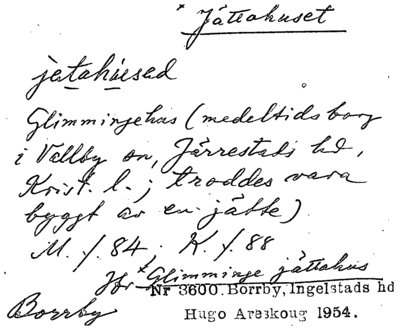 * Jättahuset
jetahúsed
Glimmingehus (medeltidsborg
i Vallby sn, Järrestads hd,
Krist. l.; troddes vara
byggt av en jätte)
M. f. 84, K. f. 88
Jfr *Glimminge jättahus
Nr 3600 Borrby, Ingelstads hd
Borrby
Hugo Areskoug 1954.